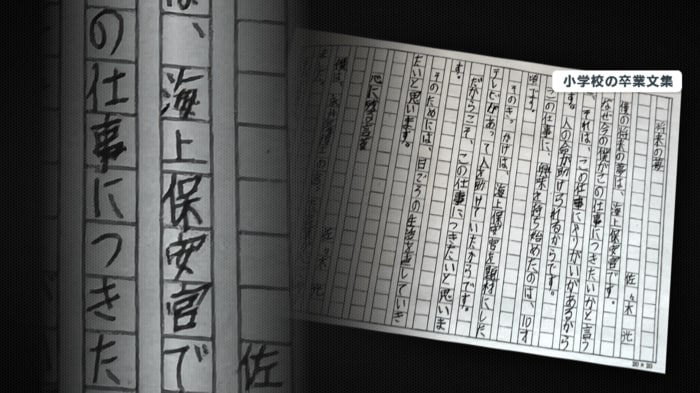 小学校の卒業文集
将来の夢
佐々木 光
僕の将来の夢は、海上保安官です。
なぜ今の僕がこの仕事につきたいかと言う
と、それは、この仕事にやりがいがあるから
です。人の命が助けられるからです。
この仕事に、興味を持ち始めたのは、10才
頃です。
そのきっかけは、海上保安官を題材にした
テレビがあって人を助けていたからです。
だからこそ、この仕事につきたいと思いま
す。
そのためには、日ごろの生活を正していき
たいと思います。
心に残る言葉
佐々木 光
僕は、
佐
は、海上保安官で
の仕事につきた
20×20